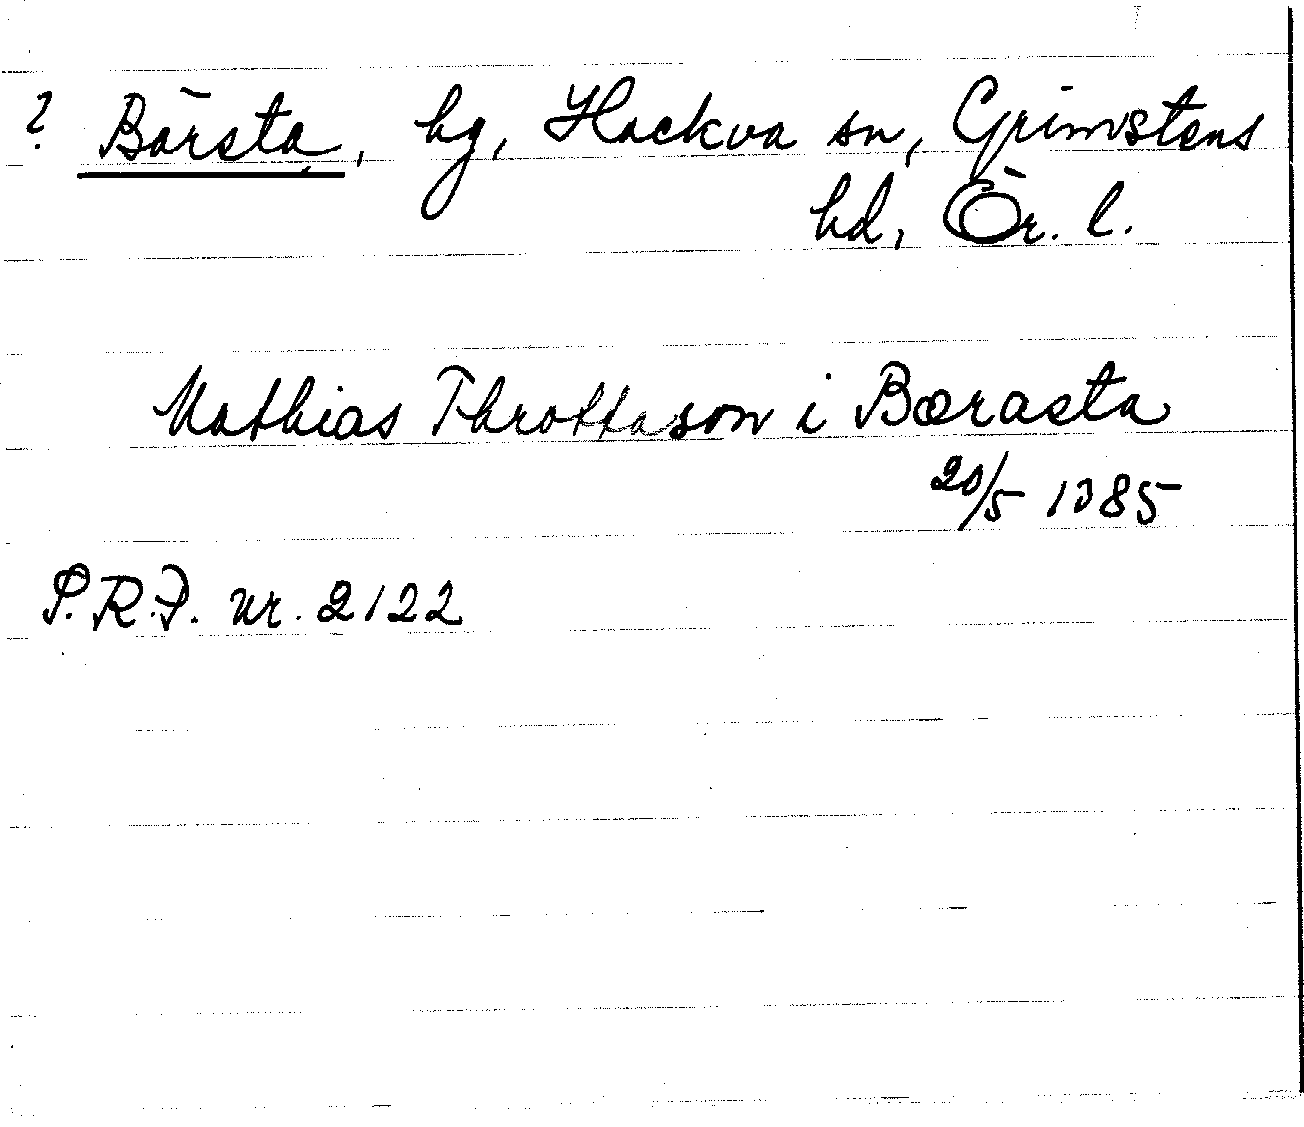 ? Bärsta, by, Hackva sn, Grimstens
hd, Ör. l.
Mathias Throttason i Bærasta
20/5 1385
P.R.P. nr. 2122